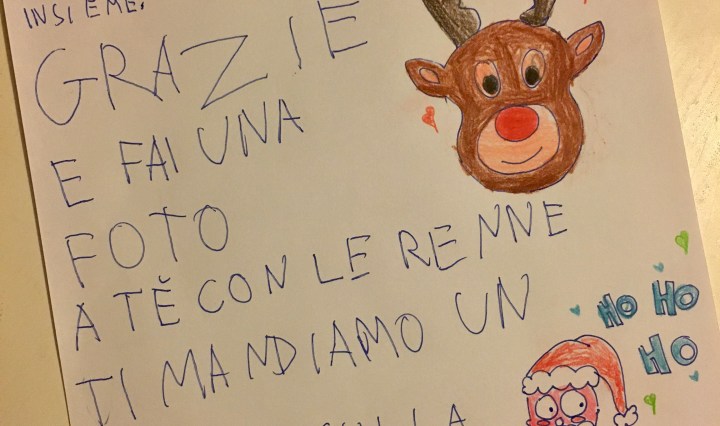 INSIEME.
GRAZIE
E FAI UNA
FOTO
A TĔ CON LE RENNE
TI MANDIAMO UN
HO HO
HO